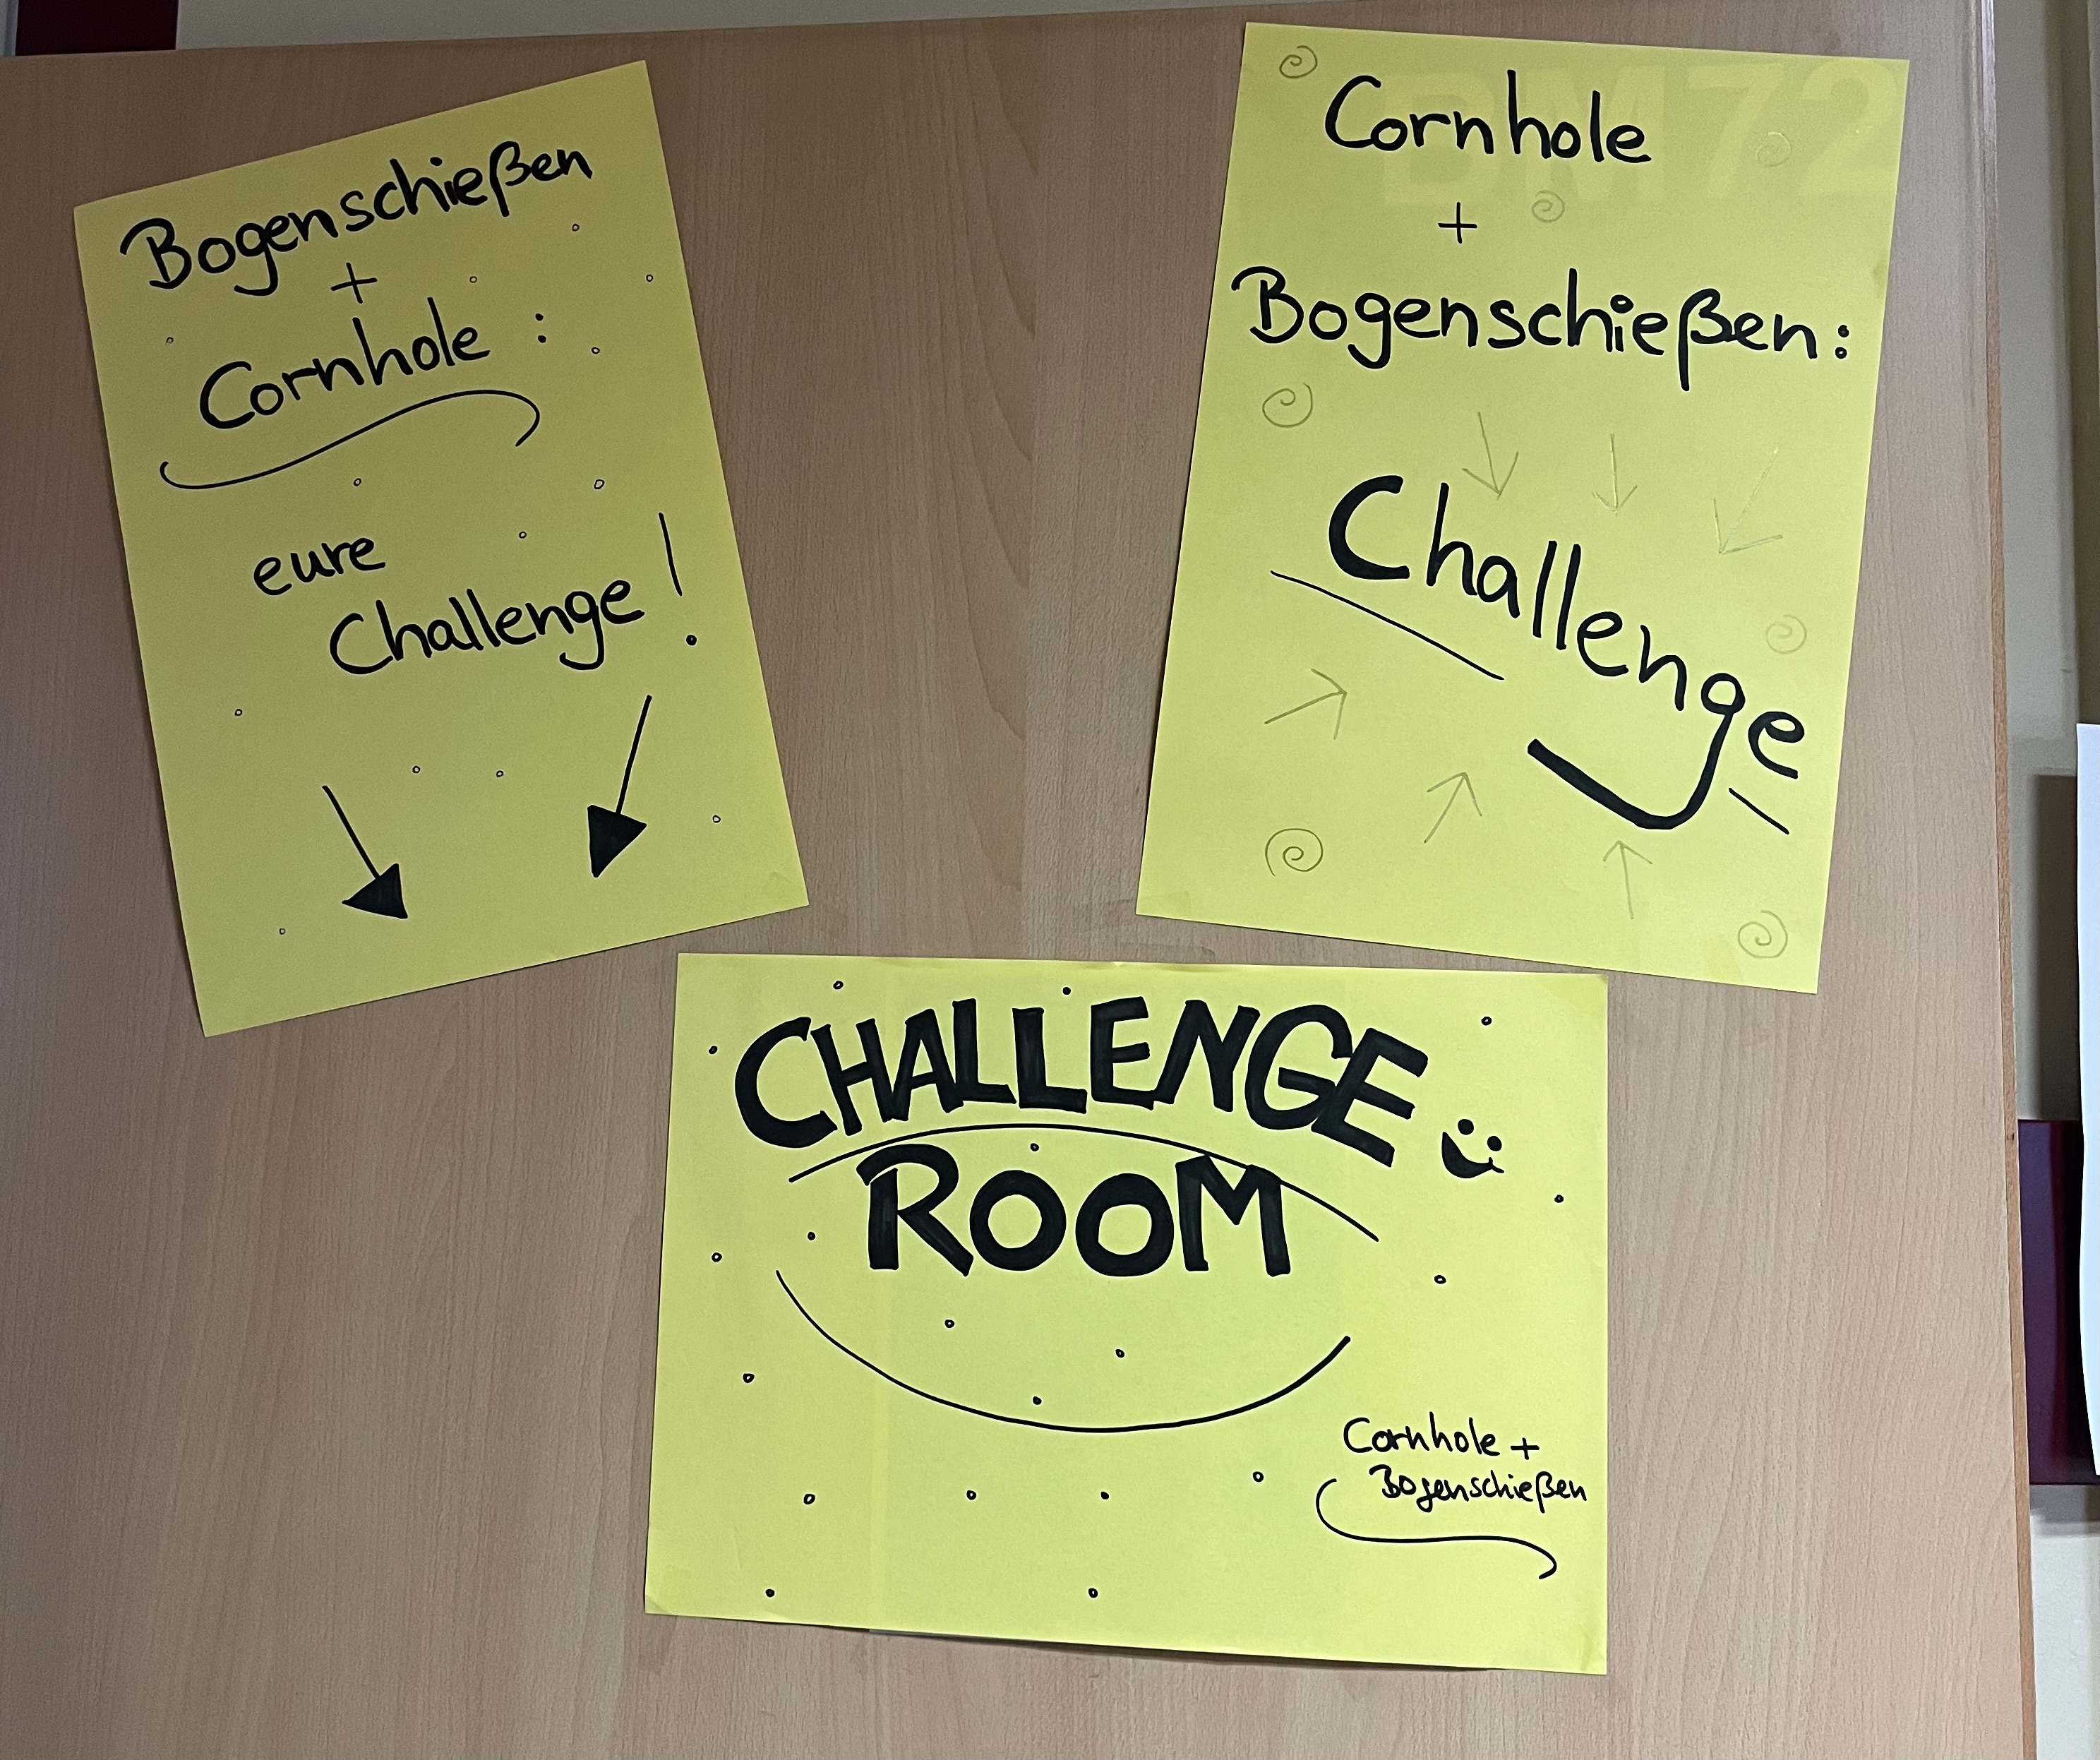 Bogenschießen
+
Cornhole :
eure
Challenge !
Cornhole
+
Bogenschießen:
Challenge
CHALLENGE
ROOM
Cornhole +
Bogenschießen
BM72